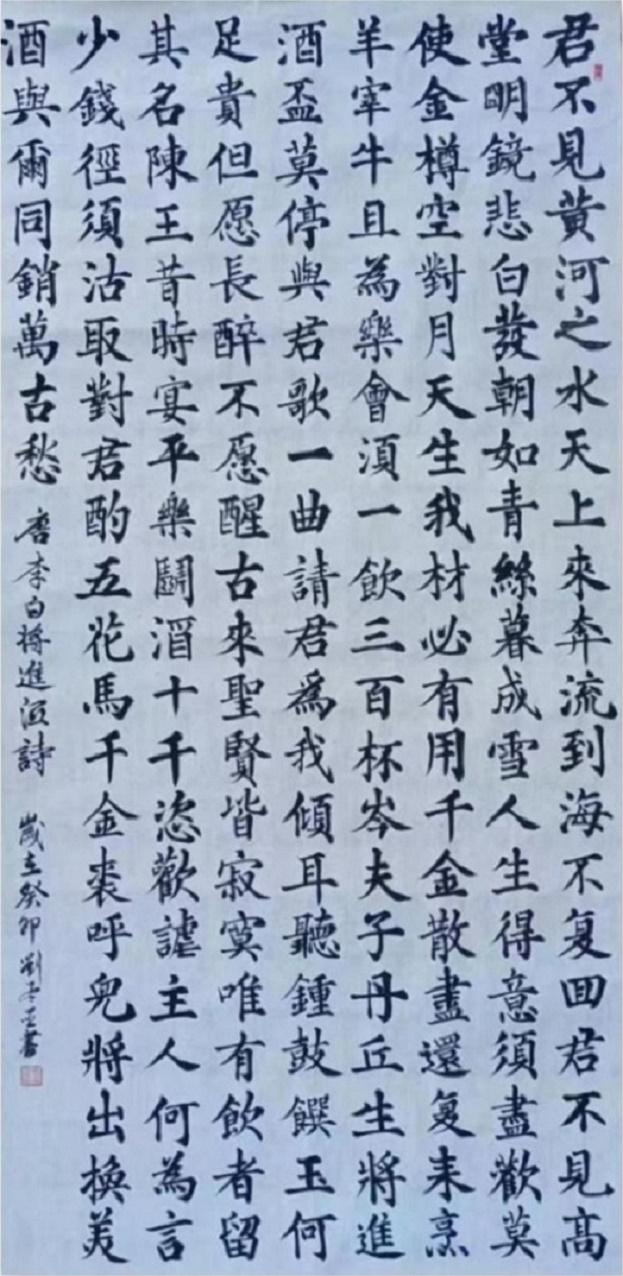 君不見黄河之水天上來奔流到海不复回君不見高
堂明鏡悲白發朝如青絲暮成雪人生得意須盡歡莫
使金樽空對月天生我材必有用千金散盡還复耒烹
羊宰牛且為樂會湏一飲三百杯岑夫子丹丘生將進
酒盃莫停與君歌一曲請君爲我傾耳聽鍾鼓饌玉何
足貴但愿長醉不愿醒古來聖賢皆寂寞唯有飲者留
其名陳王昔時宴平樂鬭酒十千恣歡謔主人何為言
少錢徑須沽取對君酌五花馬千金裘呼兒將出換美
酒與爾同銷萬古愁 唐李白將進酒詩 歲在癸卯劉書